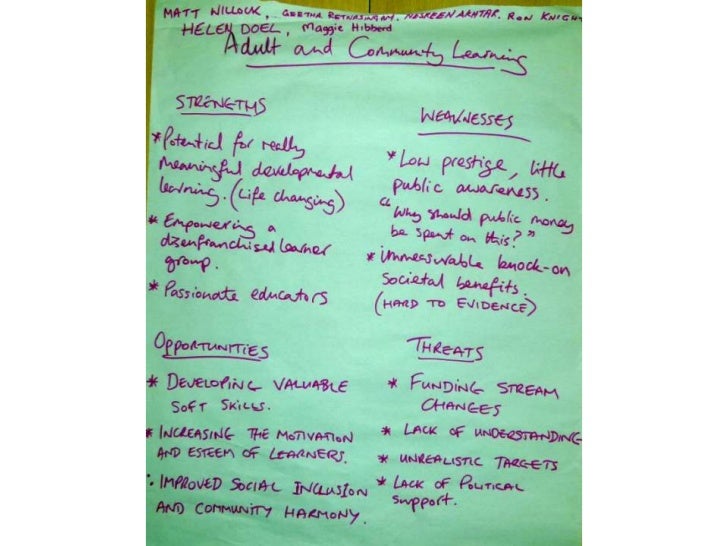 MATT WILLOCK, GEETHA RETNASINGAM, NASREEN AKHTAR, RON KNIGHT
HELEN DOEL, Maggie Hibberd
Adult and Community Learning
STRENGTHS
* Potential for really
meaningful developmental
learning. (Life changing)
* Empowering a
disenfranchised learner
group.
* Passionate educators
WEAKNESSES
* Low prestige, little
public awareness.
"Why should public money
be spent on this?"
* immeasurable knock-on
societal benefits.
(HARD TO EVIDENCE)
OPPORTUNITIES
* DEVELOPING VALUABLE
SOFT SKILLS.
* INCREASING THE MOTIVATION
AND ESTEEM OF LEARNERS.
* IMPROVED SOCIAL INCLUSION
AND COMMUNITY HARMONY.
THREATS
* FUNDING STREAM
CHANGES
* LACK OF UNDERSTANDING
* UNREALISTIC TARGETS
* LACK OF POLITICAL
support.